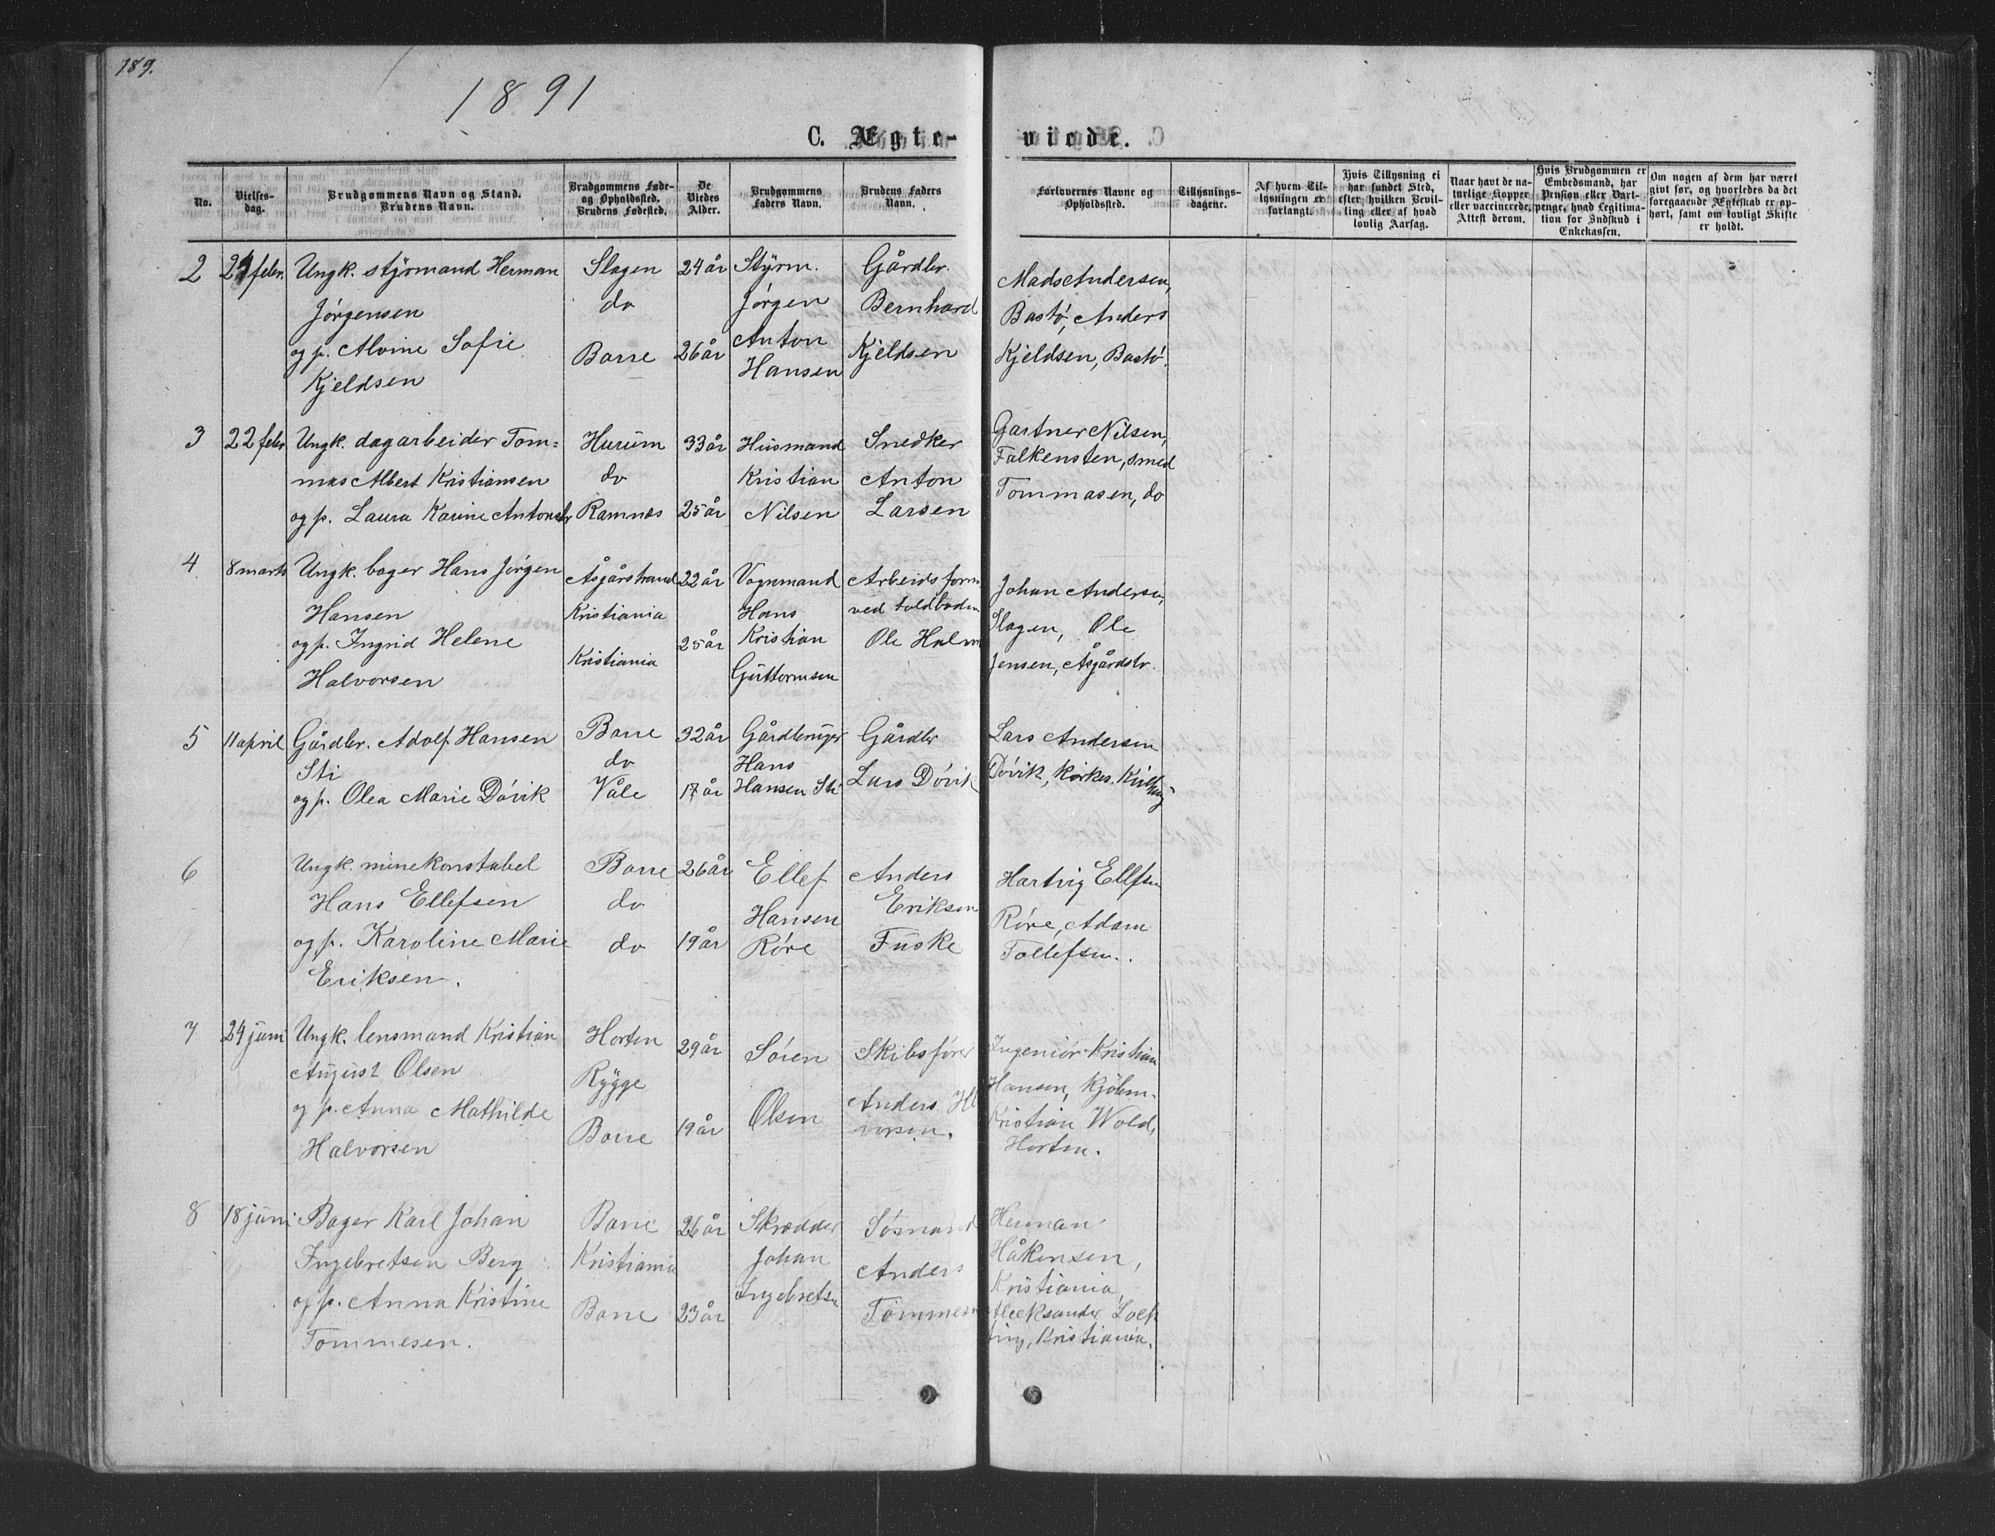 189.
1891
C. Ægte-
viede.
No.
Vielses-
dag.
Brudgommens Navn og Stand.
Brudens Navn.
Brudgommens Føde-
og Opholdssted.
Brudens Fødested.
De
Viedes
Alder.
Brudgommens
Faders Navn.
Brudens Faders
Navn.
Forlovernes Navne og
Opholdssted.
Tillysnings-
dagene.
Af hvem Til-
lysningen er
forlangt.
Hvis Tillysning ei
har fundet Sted,
efter hvilken Bevil-
ling eller af hvad
lovlig Aarsag.
Naar havt de na-
turlige Kopper
eller vaccinerede,
Attest derom.
Hvis Brudgommen er
Embedsmand, har
Pension eller Vart-
penge, hvad Legitima-
tion for Indskud i
Enkekassen.
Om nogen af dem har været
givt før, og hvorledes da det
foregaaende Ægteskab er op-
hørt, samt om lovligt Skifte
er holdt.
2
febr.
Ungk. styrmand Herman
Jørgensen
og p. Alvine Sofie
Kjeldsen
Slagen
do
Borre
24 år
26 år
Styrm.
Jørgen
Anton
Hansen
Gårdbr.
Bernhard
Kjeldsen
Mads Andersen,
Bastø, Anders
Kjeldsen, Bastø.
3
22 febr
Ungk. dagarbeider Tom=
mas Albert Kristiansen
og p. Laura Karine Antonsdr
Hurum
do
Ramnæs
33 år
25 år
Husmand
Kristian
Nilsen
Snedker
Anton
Larsen
Gartner Nilsen,
Falkensten, smed
Tommasen, do
4
8 marts
Ungk. bager Hans Jørgen
Hansen
og p. Ingrid Helene
Halvorsen
Åsgårstrand
Kristiania
Kristiania
22 år
25 år
Vognmand
Hans
Kristian
Guttormsen
Arbeidsform
ved toldboden
Ole Halvor
Johan Andersen,
Slagen, Ole
Jensen, Åsgårdstr.
5
11 april
Gårdbr. Adolf Hansen
Sti
og p. Olea Marie Døvik
Borre
do
Våle
32 år
17 år
Gårdbruger
Hans
Hansen Sti
Gårdbr
Lars Døvik
Lars Andersen
Døvik, Kirkes.
6
Ungk. minekonstabel
Hans Ellefsen
og p. Karoline Marie
Eriksen.
Borre
do
do
26 år
19 år
Ellef
Hansen
Røre
Anders
Eriksen
Fuske
Hartvig Ellefsen
Røre, Adam
Tollefsen.
7
24 juni
Ungk. lensmand Kristian
August Olsen
og p. Anna Mathilde
Halvorsen
Horten
Rygge
Borre
29 år
19 år
Søren
Olsen
Skibsfører
Anders Hl
vorsen.
Ingeniør Kristian
Hansen, Kjøbm.
Kristian Wold,
Horten.
8
18 juni
Bager Karl Johan
Ingebretsen Berg
og p. Anna Kristine
Tommesen.
Borre
Kristiania
Borre
26 år
23 år
Skrædder
Johan
Ingebretsen
Sømand
Anders
Tommesen
Herman
Håkensen,
Kristiania,
Alecksander Loek
ting, Kristiania.